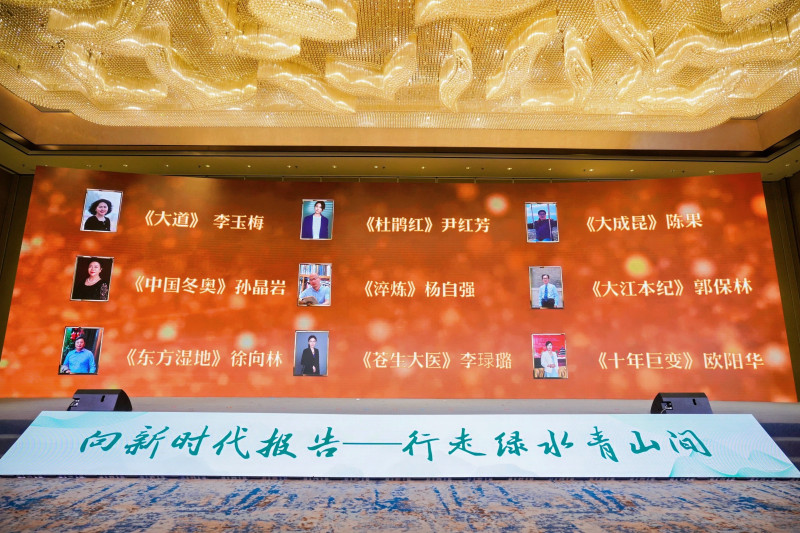 《大道》 李玉梅
《杜鹃红》尹红芳
《大成昆》陈果
《中国冬奥》孙晶岩
《淬炼》杨自强
《大江本纪》郭保林
《东方湿地》徐向林
《苍生大医》李琭璐
《十年巨变》欧阳华
向新时代报告——行走绿水青山间